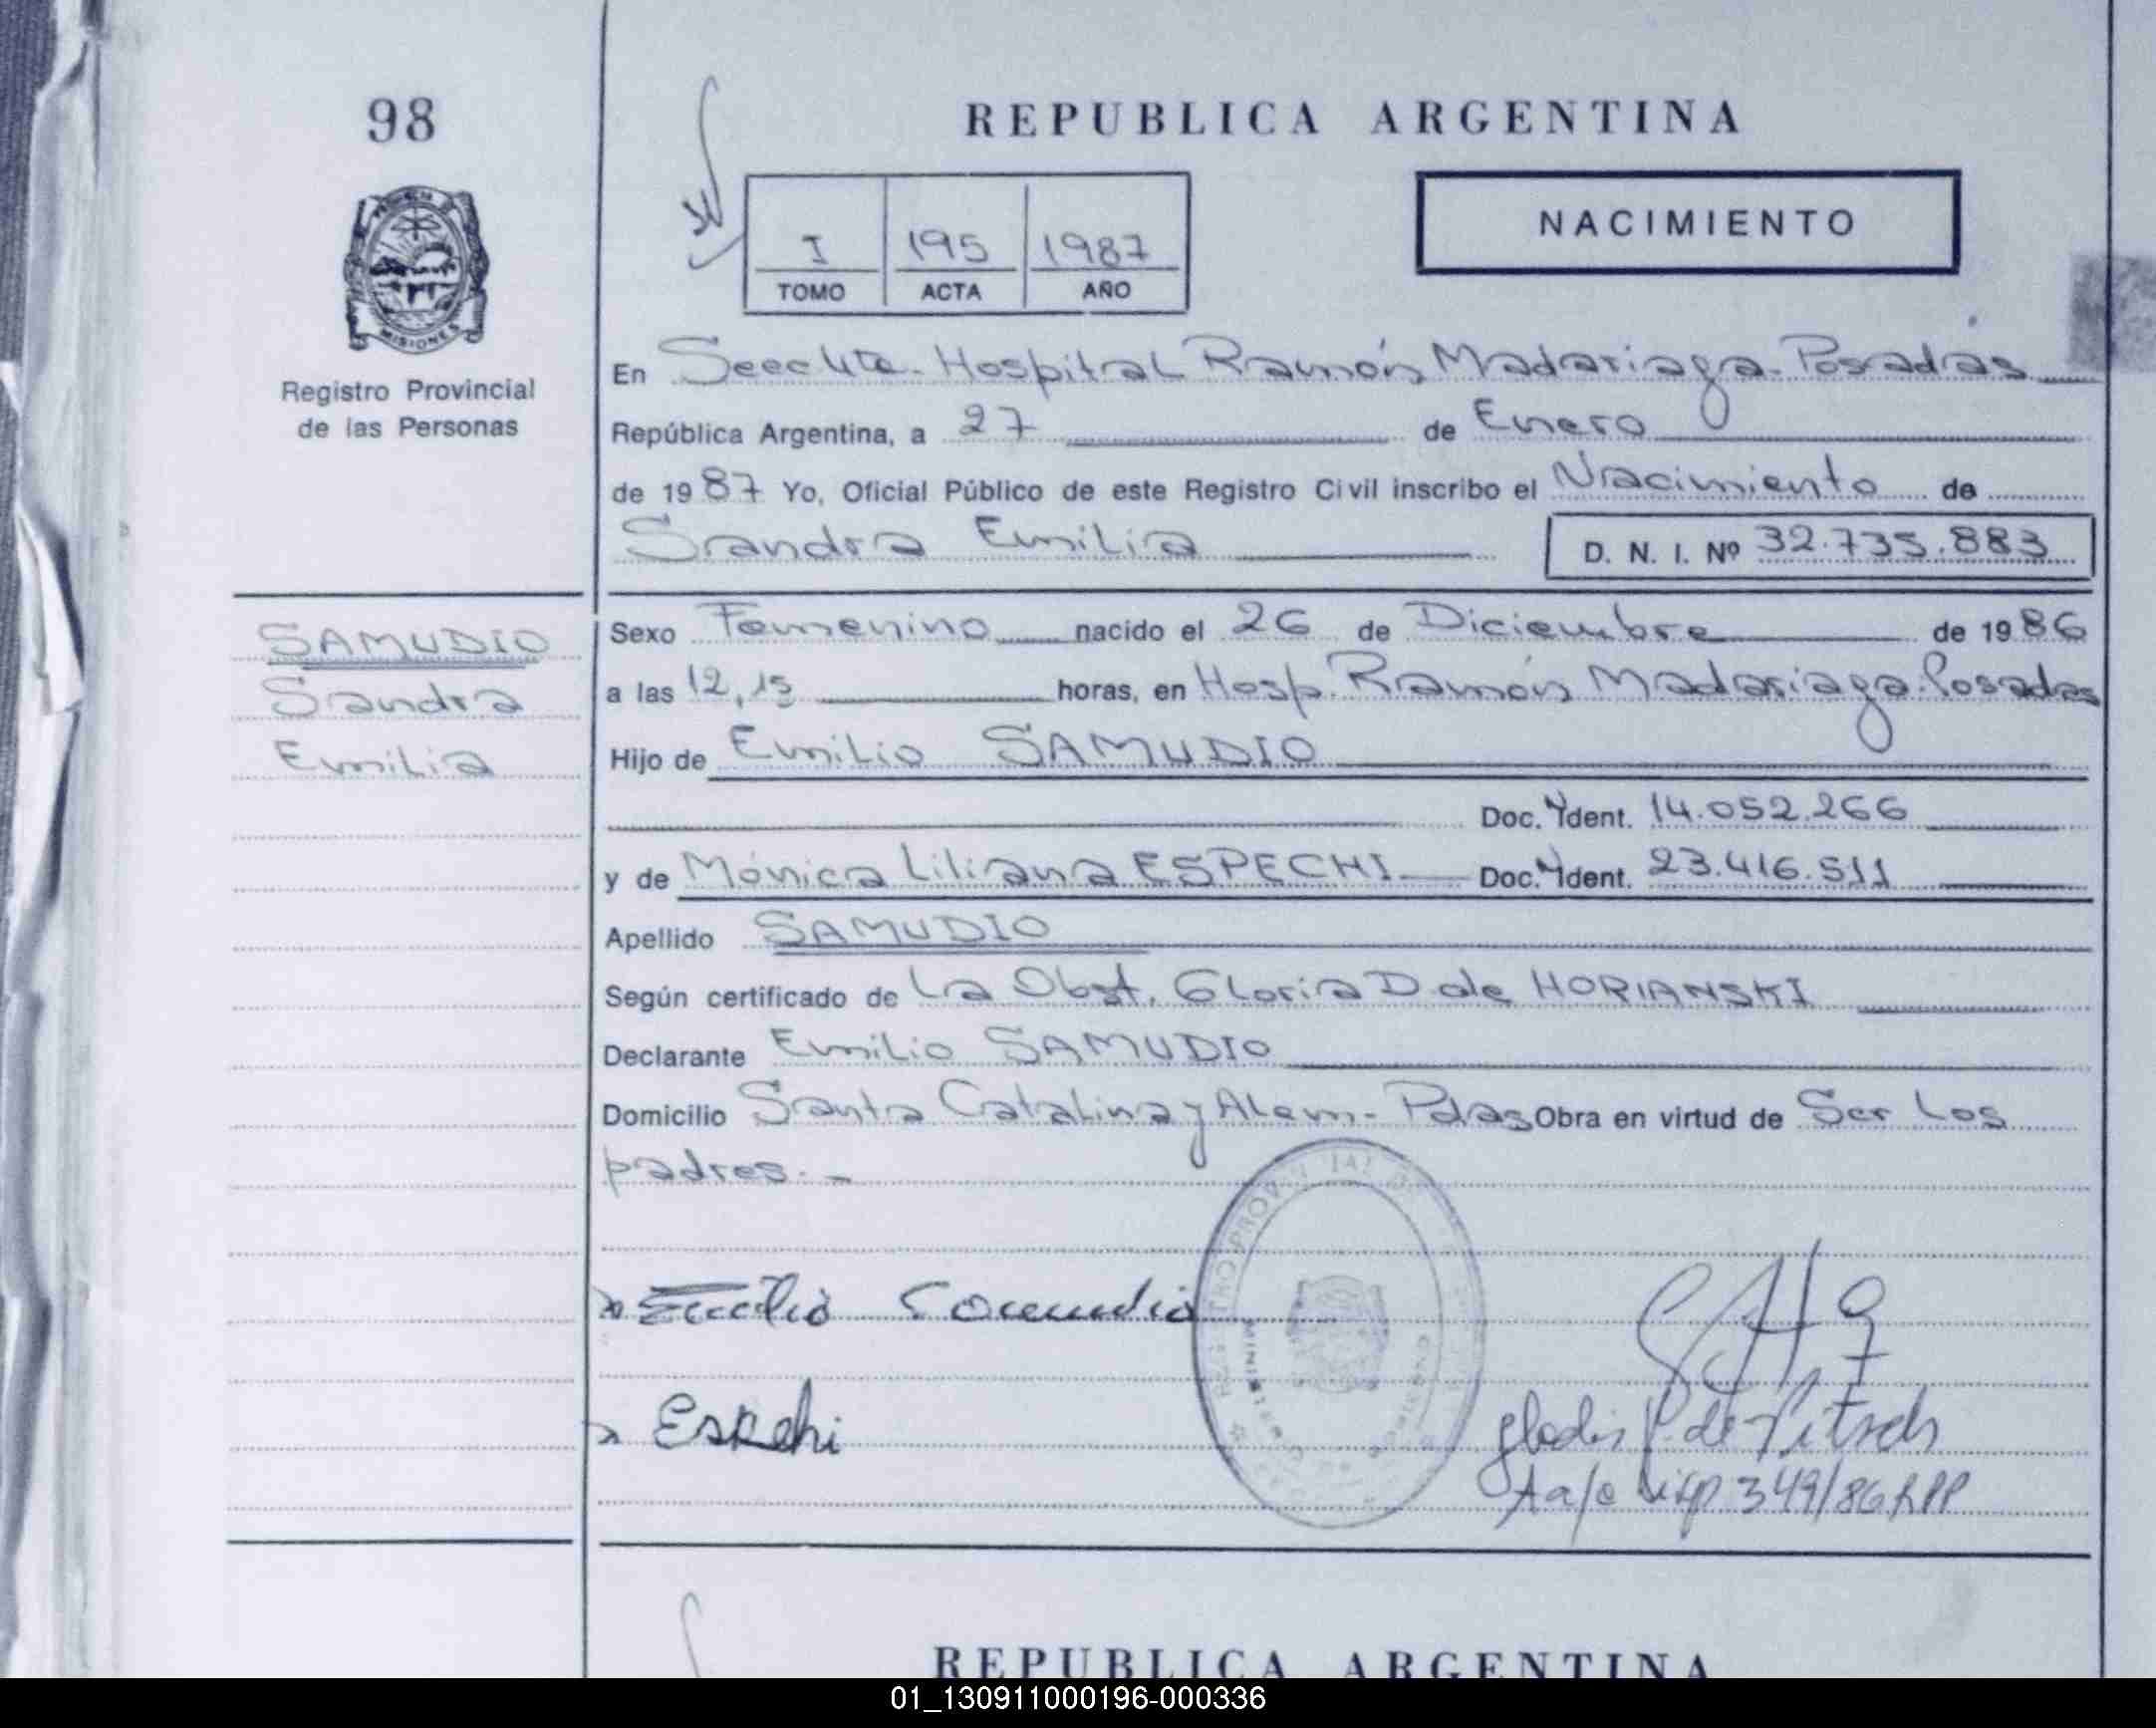 98
REPUBLICA ARGENTINA
NACIMIENTO
I 195 1987
TOMO ACTA AÑO
MISIONES
Registro Provincial
de las Personas
En Hospital Ramón Madariaga - Posadas
República Argentina, a 27 de Enero
de 1987 Yo, Oficial Público de este Registro Civil inscribo el Nacimiento de
Sandra Emilia D. N. I. Nº 32.735.883
SAMUDIO
Sandra
Emilia
Sexo Femenino nacido el 26 de Diciembre de 1986
a las 12,15 horas, en Hosp. Ramón Madariaga. Posadas
Hijo de Emilio SAMUDIO
Doc. Ident. 14.052.266
y de Mónica Liliana ESPECHI Doc. Ident. 23.416.511
Apellido SAMUDIO
Según certificado de La Obst. Gloria D de HORIANSKI
Declarante Emilio SAMUDIO
Domicilio Santa Catalina y Alem - Pdas Obra en virtud de Ser Los
padres. -
Emilio Samudio
Espechi
349/86 RPP
REPUBLICA ARGENTINA
01_130911000196-000336